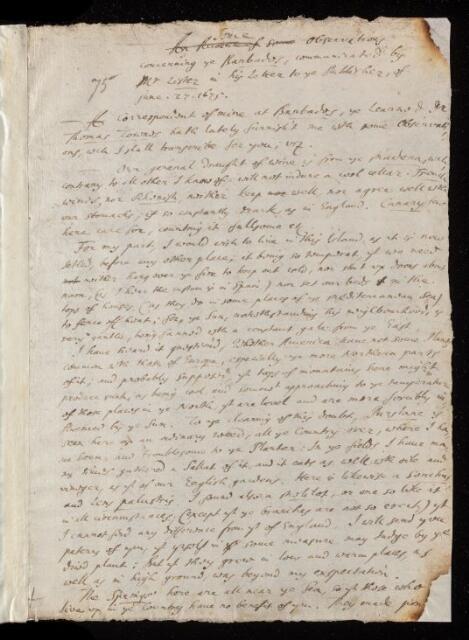 some Observations
concerning ye Barbados, communicated by
75 Mr Lister in his Letter to ye Publisher, of
June. 27. 1675.
A Correspondent of mine at Barbados, ye Learned Dr
Thomas Townes hath lately furnish't me with some Observati
ons, wch I shall transcribe for you; viz.
Our general draught of wine is from ye Maderas, wch
contrary to all other I know of will not indure a cool cellar. French
wines, nor Rhenish, neither keep well, nor agree well with
our stomachs, if so constantly drank, as in England. Canary
here care for, counting it fulsome
For my part, I would wish to live in this Island, as it is now
settled, before any other place; it being so temperat, yt we need
neither hang over ye fire to keep out cold, nor shut up doors about
noon, (as I hear the custom is in Spain) nor set our beds on the
tops of houses, (as they do in some places of ye Mediterranean sea)
to fence off heat; the Sun, notwithstanding his neighbourhood, is
very gentle, being fanned with a constant gale from ye East.
I have heard it questioned, Whether America have not some Plants
common with those of Europe, especially ye more Northern parts
of it; and probably supposed, yt ye tops of mountains here might
produce such, as being cool and approaching to ye temperature
of those places in ye North, yt are level and are more forcibly
by ye Sun. To ye clearing of this doubt, Purslane is
seen here an ordinary weed, all ye Country over, where I have
been; and troublesome to ye Planter: In ye fields I have many
times gathered a Salat of it, and it eats as well with oile and
vinegar, as yt of our English gardens. Here is likewise a
and Lens palustris. I found also a Melilot, or one so like it
in all circumstances, (except yt ye branches are not so erect,) yt
I cannot find any difference from yt of England. I will send you
patterns of ym; yt yrself in some measure may judge by ye
dried plant: But yt they grow in low and warm places, as
well as in high ground, was beyond my expectation.
The Springs here are all near ye Sea, so yt those who
live up in ye Country have no benefit of ym. They made